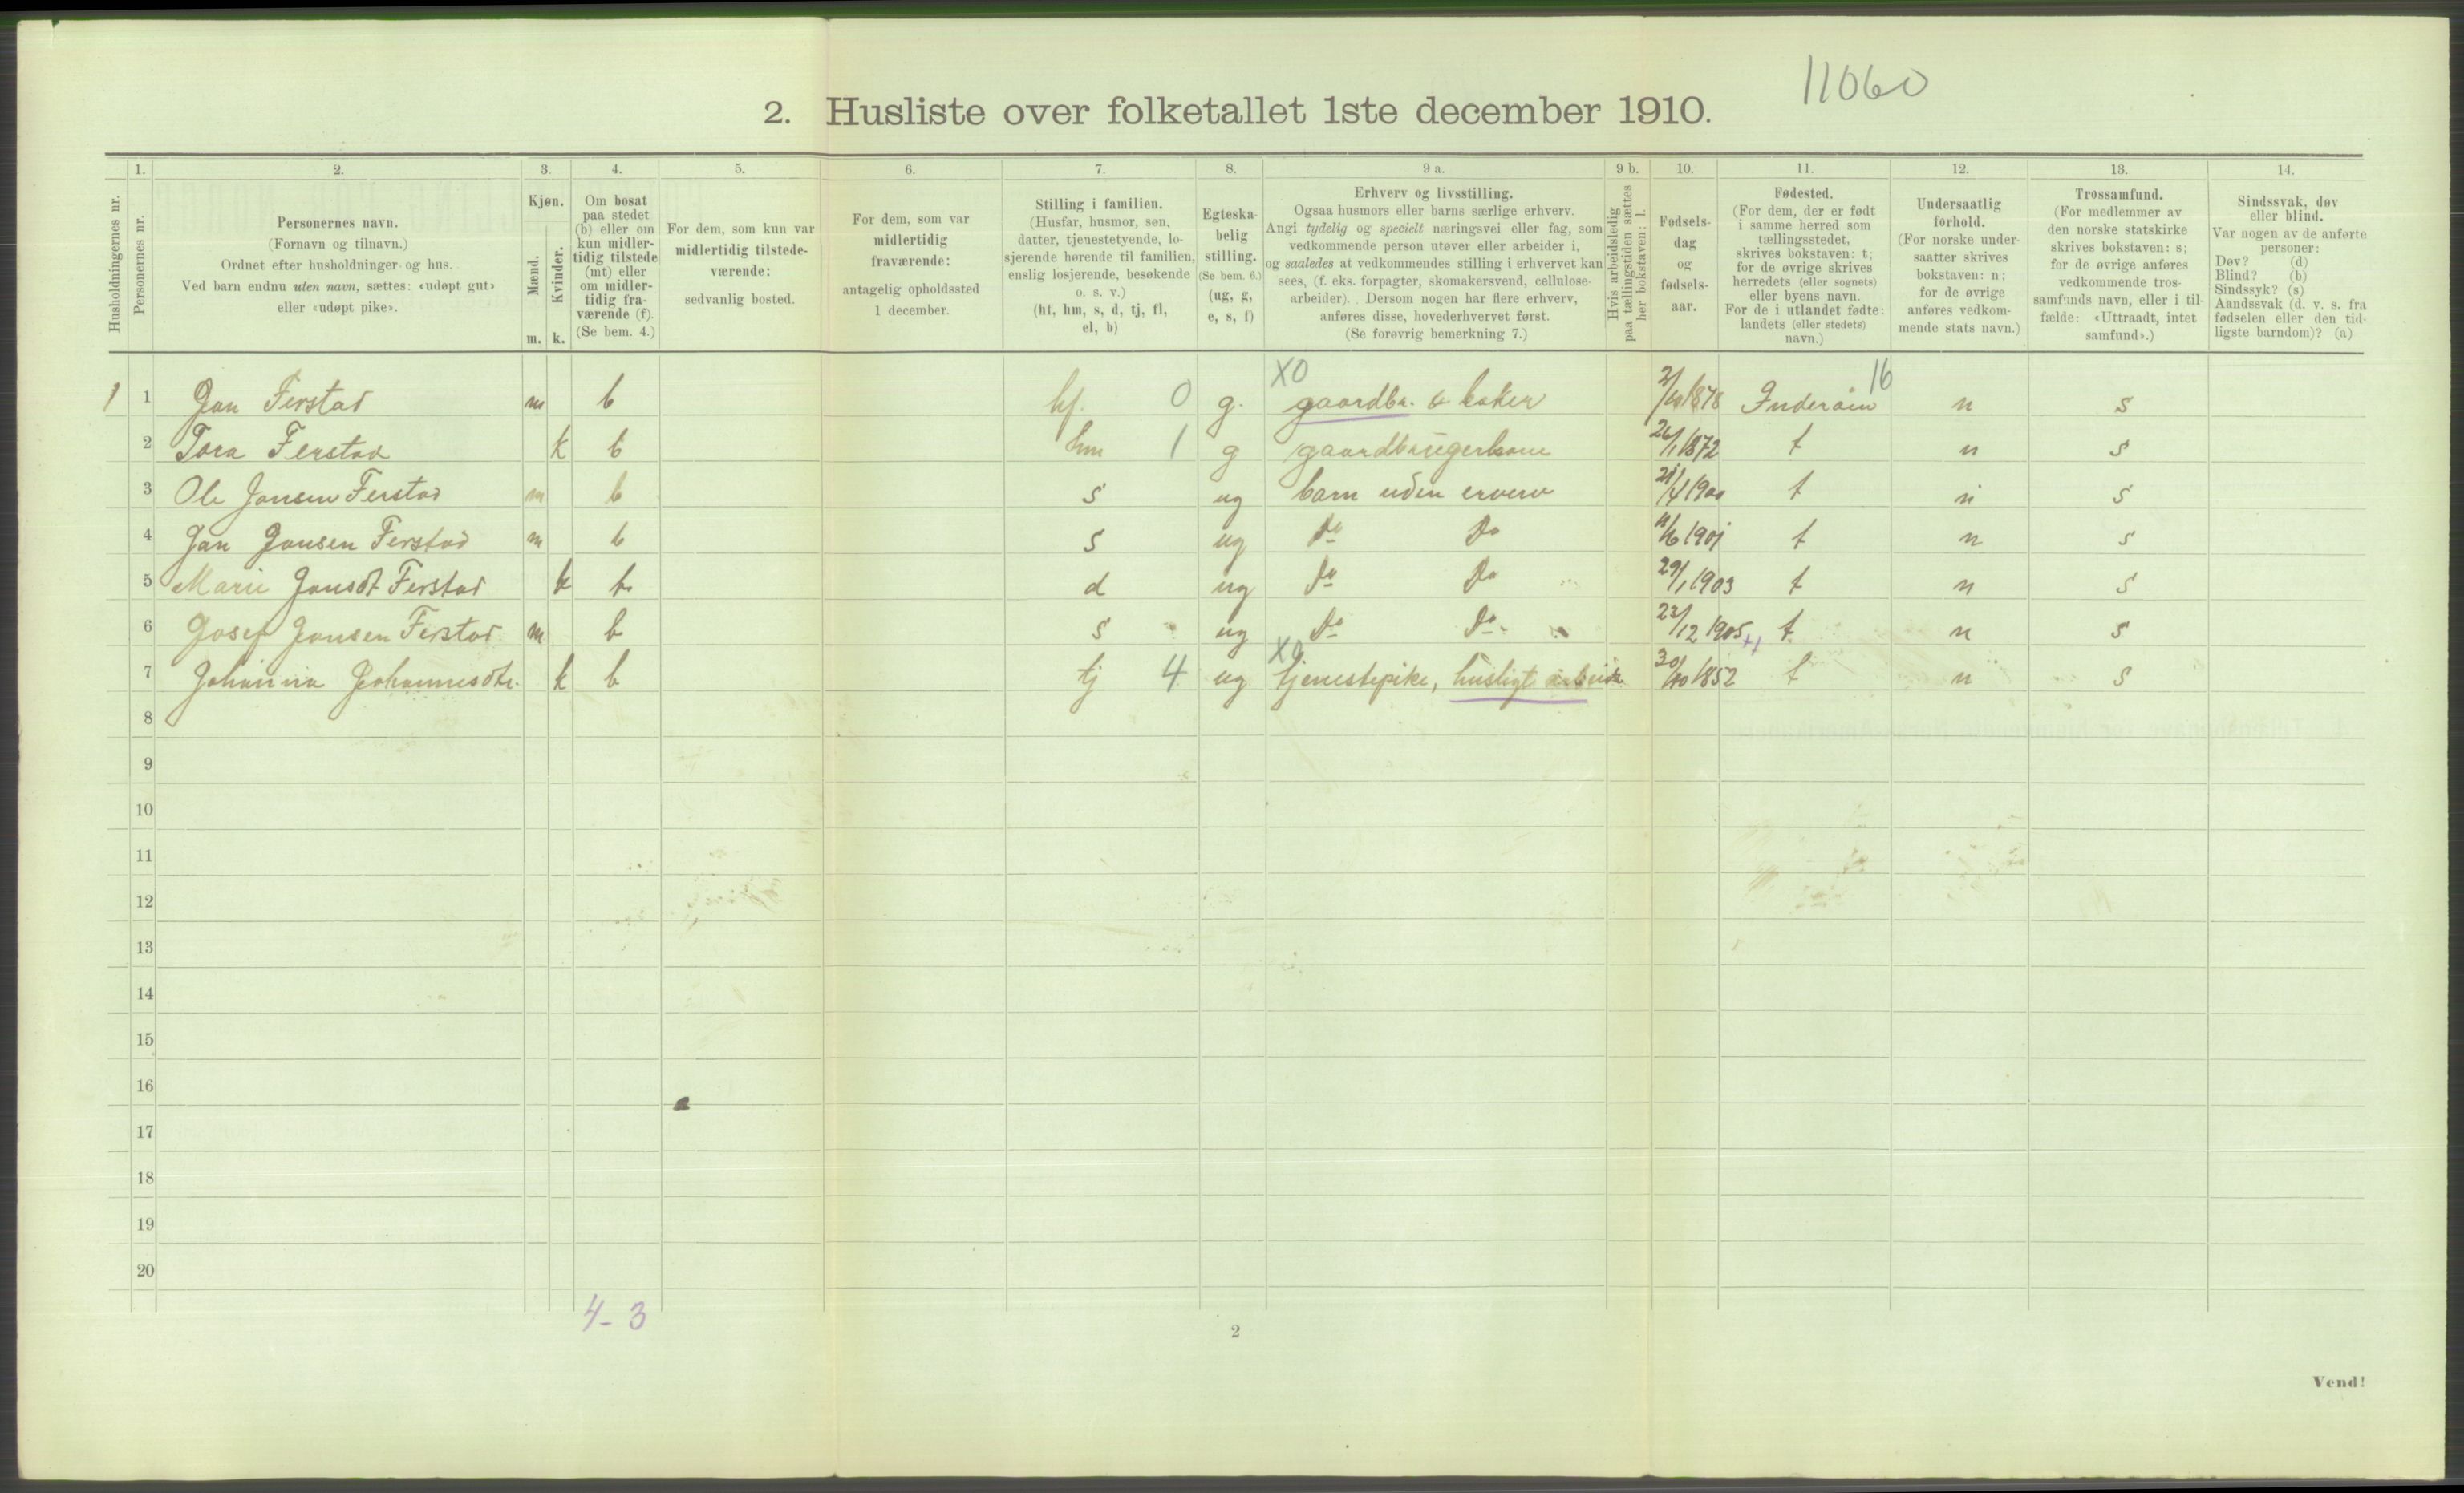 11060
2. Husliste over folketallet 1ste december 1910.
1. 2. 3. 4. 5. 6. 7. 8. 9 a. 9 b. 10. 11. 12. 13. 14.
Husholdningernes nr.
Personernes nr.
Personernes navn.
(Fornavn og tilnavn.)
Ordnet efter husholdninger og hus.
Ved barn endnu uten navn, sættes: «udøpt gut»
eller «udøpt pike».
Kjøn.
Mænd.
Kvinder.
m. k.
Om bosat
paa stedet
(b) eller om
kun midler-
tidig tilstede
(mt) eller
om midler-
tidig fra-
værende (f).
(Se bem. 4.)
For dem, som kun var
midlertidig tilstede-
værende:
sedvanlig bosted.
For dem, som var
midlertidig
fraværende:
antagelig opholdssted
1 december.
Stilling i familien.
(Husfar, husmor, søn,
datter, tjenestetyende, lo-
sjerende hørende til familien,
enslig losjerende, besøkende
o. s. v.)
(hf, hm, s, d, tj, fl,
el, b)
Egteska-
belig
stilling.
(Se bem. 6.)
(ug, g,
e, s, f)
Erhverv og livsstilling.
Ogsaa husmors eller barns særlige erhverv.
Angi tydelig og specielt næringsvei eller fag, som
vedkommende person utøver eller arbeider i,
og saaledes at vedkommendes stilling i erhvervet kan
sees, (f. eks. forpagter, skomakersvend, cellulose-
arbeider). Dersom nogen har flere erhverv,
anføres disse, hovederhvervet først.
(Se forøvrig bemerkning 7.)
Hvis arbeidsledig
paa tællingstiden sættes
her bokstaven: l.
Fødsels-
dag
og
fødsels-
aar.
Fødested.
(For dem, der er født
i samme herred som
tællingsstedet,
skrives bokstaven: t;
for de øvrige skrives
herredets (eller sognets)
eller byens navn.
For de i utlandet fødte:
landets (eller stedets)
navn.)
Undersaatlig
forhold.
(For norske under-
saatter skrives
bokstaven: n;
for de øvrige
anføres vedkom-
mende stats navn.)
Trossamfund.
(For medlemmer av
den norske statskirke
skrives bokstaven: s;
for de øvrige anføres
vedkommende tros-
samfunds navn, eller i til-
fælde: «Uttraadt, intet
samfund».)
Sindssvak, døv
eller blind.
Var nogen av de anførte
personer:
Døv? (d)
Blind? (b)
Sindssyk? (s)
Aandssvak (d. v. s. fra
fødselen eller den tid-
ligste barndom)? (a)
X0 16
1 1 Jan Ferstad m b hf. 0 g. gaardbr. & baker 1878 Inderøen n s
2 Tora Ferstad k b hm 1 g gaardbrugerkone 26/1 1872 t n s
3 Ole Jansen Ferstad m b s ug barn uden erverv 1900 t n s
4 Jan Jansen Ferstad m b s ug do do 11/6 1901 t n s
5 Marie Jansdt Ferstad k b d ug do do 29/1 1903 t n s
6 Josef Jansen Ferstad m b s ug do do 23/12 1905 t n s
X0
7 Johanna Johannesdtr. k b tj 4 ug tjenestepike, husligt arbeide 30/10 1852 t n s
8
9
10
11
12
13
14
15
16
17
18
19
20
4-3
2
Vend!